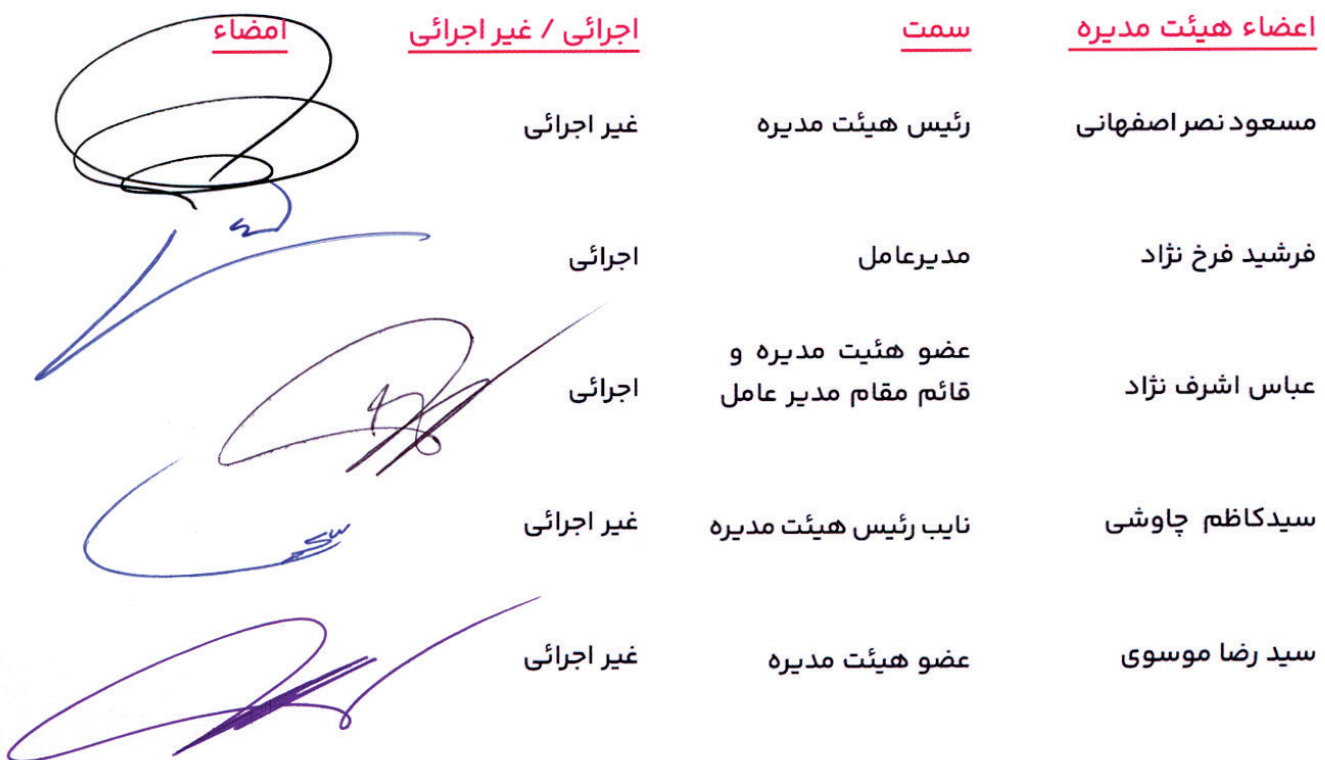 اعضاء هیئت مدیره سمت اجرائی / غیر اجرائی امضاء
مسعود نصر اصفهانی رئیس هیئت مدیره غیر اجرائی
فرشید فرخ نژاد مدیرعامل اجرائی
عباس اشرف نژاد عضو هئیت مدیره و
قائم مقام مدیر عامل اجرائی
سیدکاظم چاوشی نایب رئیس هیئت مدیره غیر اجرائی
سید رضا موسوی عضو هیئت مدیره غیر اجرائی